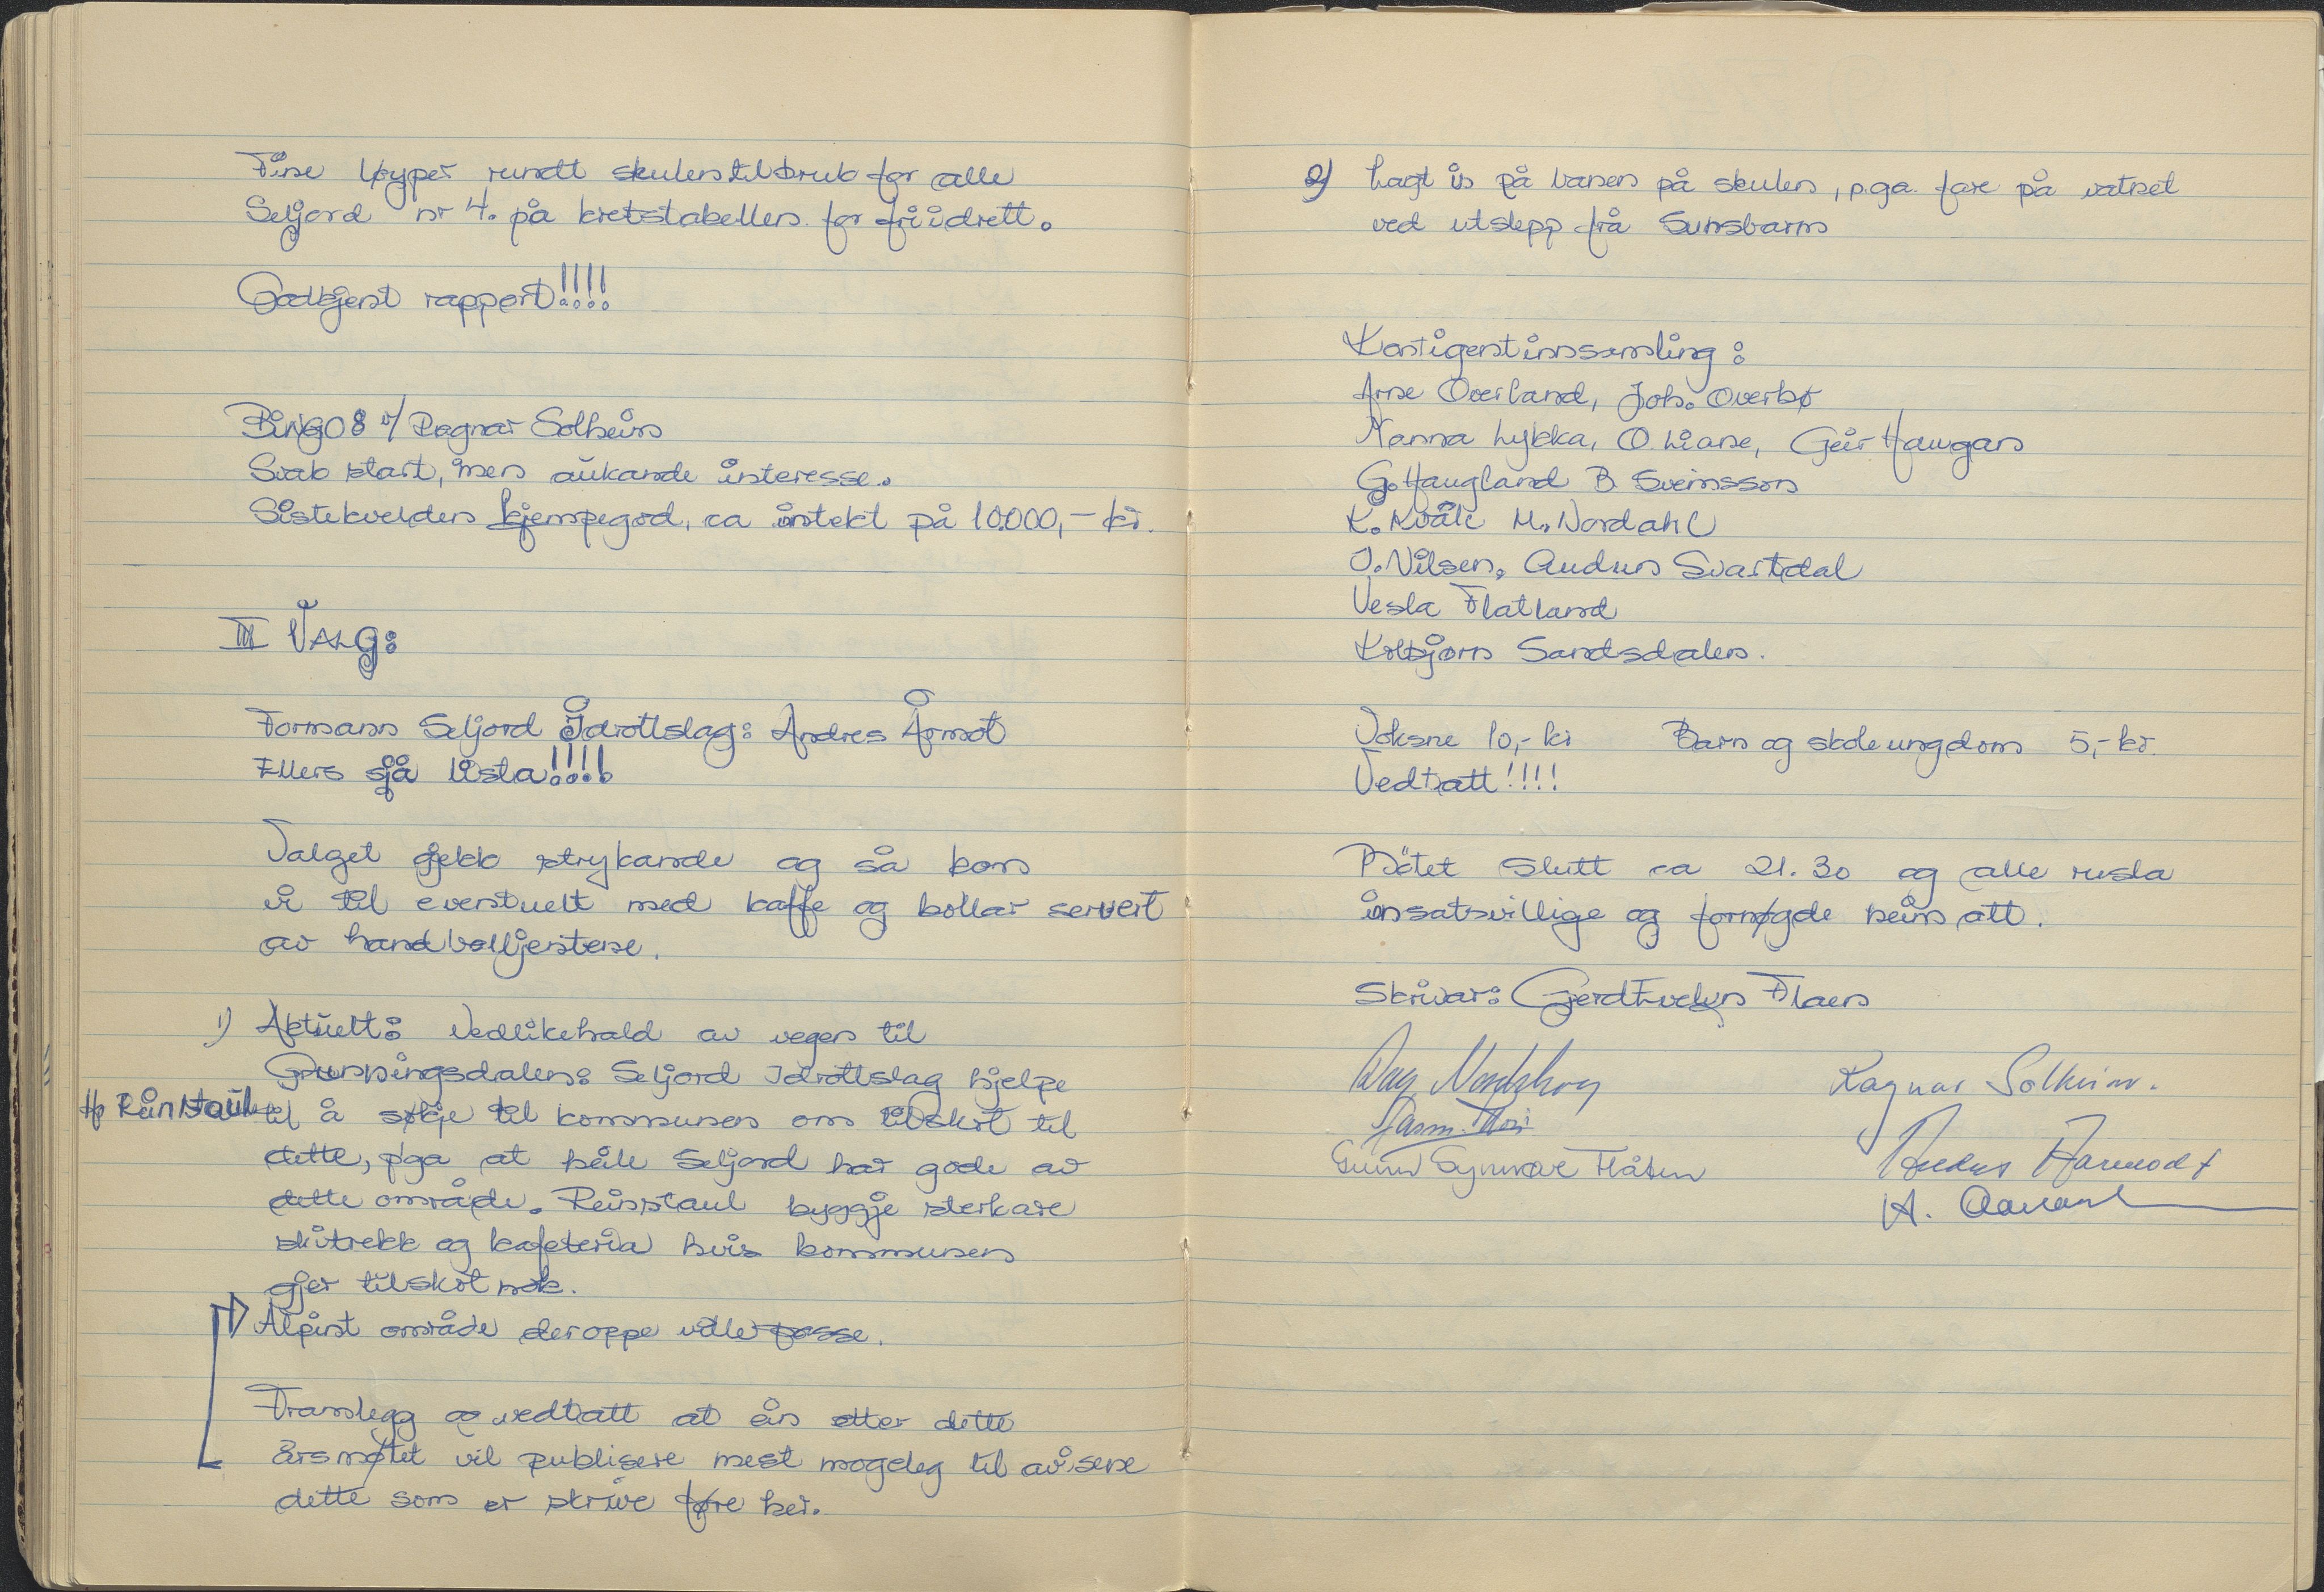 Fine løyper rundt skulen til bruk for alle
Seljord nr 4. på kretstabellen for friidrett.
Godkjent rapport!!!!
BiNGO: v/ Ragnar Solheim
Svak start, men aukande interesse.
Sistekvelden kjempegod, ca inntekt på 10.000,- kr.
III VALG:
Formann Seljord Idrottslag: Andres Årmot
Ellers sjå lista!!!!
Valget gjekk strykande og så kom
vi til eventuelt med kaffe og bollar servert
av handballjentene.
1) Aktuelt: Vedlikehald av vegen til
Grunningsdalen: Seljord Idrottslag hjelpe
til å søkje til kommunen om tilskot til
dette, p'ga at heile Seljord har gode av
dette område. Reinstaul byggje sterkare
skitrekk og kafeteria hvis kommunen
gjer tilskot nok.
Alpint område der oppe ville passe.
Framlegg og vedtatt at ein etter dette
årsmøtet vil publisere mest mogeleg til avisene
dette som er skrive føre her.
2) Lagt is på banen på skulen, p.ga. fare på vatnet
ved utslepp frå Sunsbarm
Kontigentinnsamling:
Arne Overland, Joh. Overbø
Nanna Lykka, O. Liane, Geir Haugan
G. Haugland B. Sveinsson
K. Kvåle M. Nordahl
J. Nilsen, Audun Svartdal
Vesla Flatland
Kolbjørn Sandsdalen.
Voksne 10,- kr Barn og skoleungdom 5,- kr.
Vedtatt!!!!
Møtet slutt ca 21.30 og alle rusla
insatsvillige og fornøgde heim att.
Skrivar: Gjerd Evelyn Flaen
Dag Nordskog Ragnar Solheim.
Gunn Synnøve Flåten